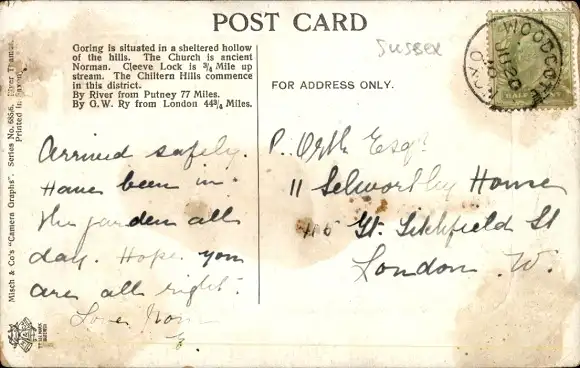 POST CARD
Sussex
Goring is situated in a sheltered hollow
of the hills. The Church is ancient
Norman. Cleeve Lock is 3/4 Mile up
stream. The Chiltern Hills commence
in this district.
By River from Putney 77 Miles.
By G.W. Ry from London 44 3/4 Miles.
FOR ADDRESS ONLY.
WOODCOTE
HALF
Misch & Co's "Camera Graphs". Series No. 685/6. River Thames.
Printed in Saxony.
Arrived safely.
Have been in
the garden all
day. Hope you
are all right.
Love
P. Orth Esqr
11 Selworthy House
Gt. Litchfield St
London. W.